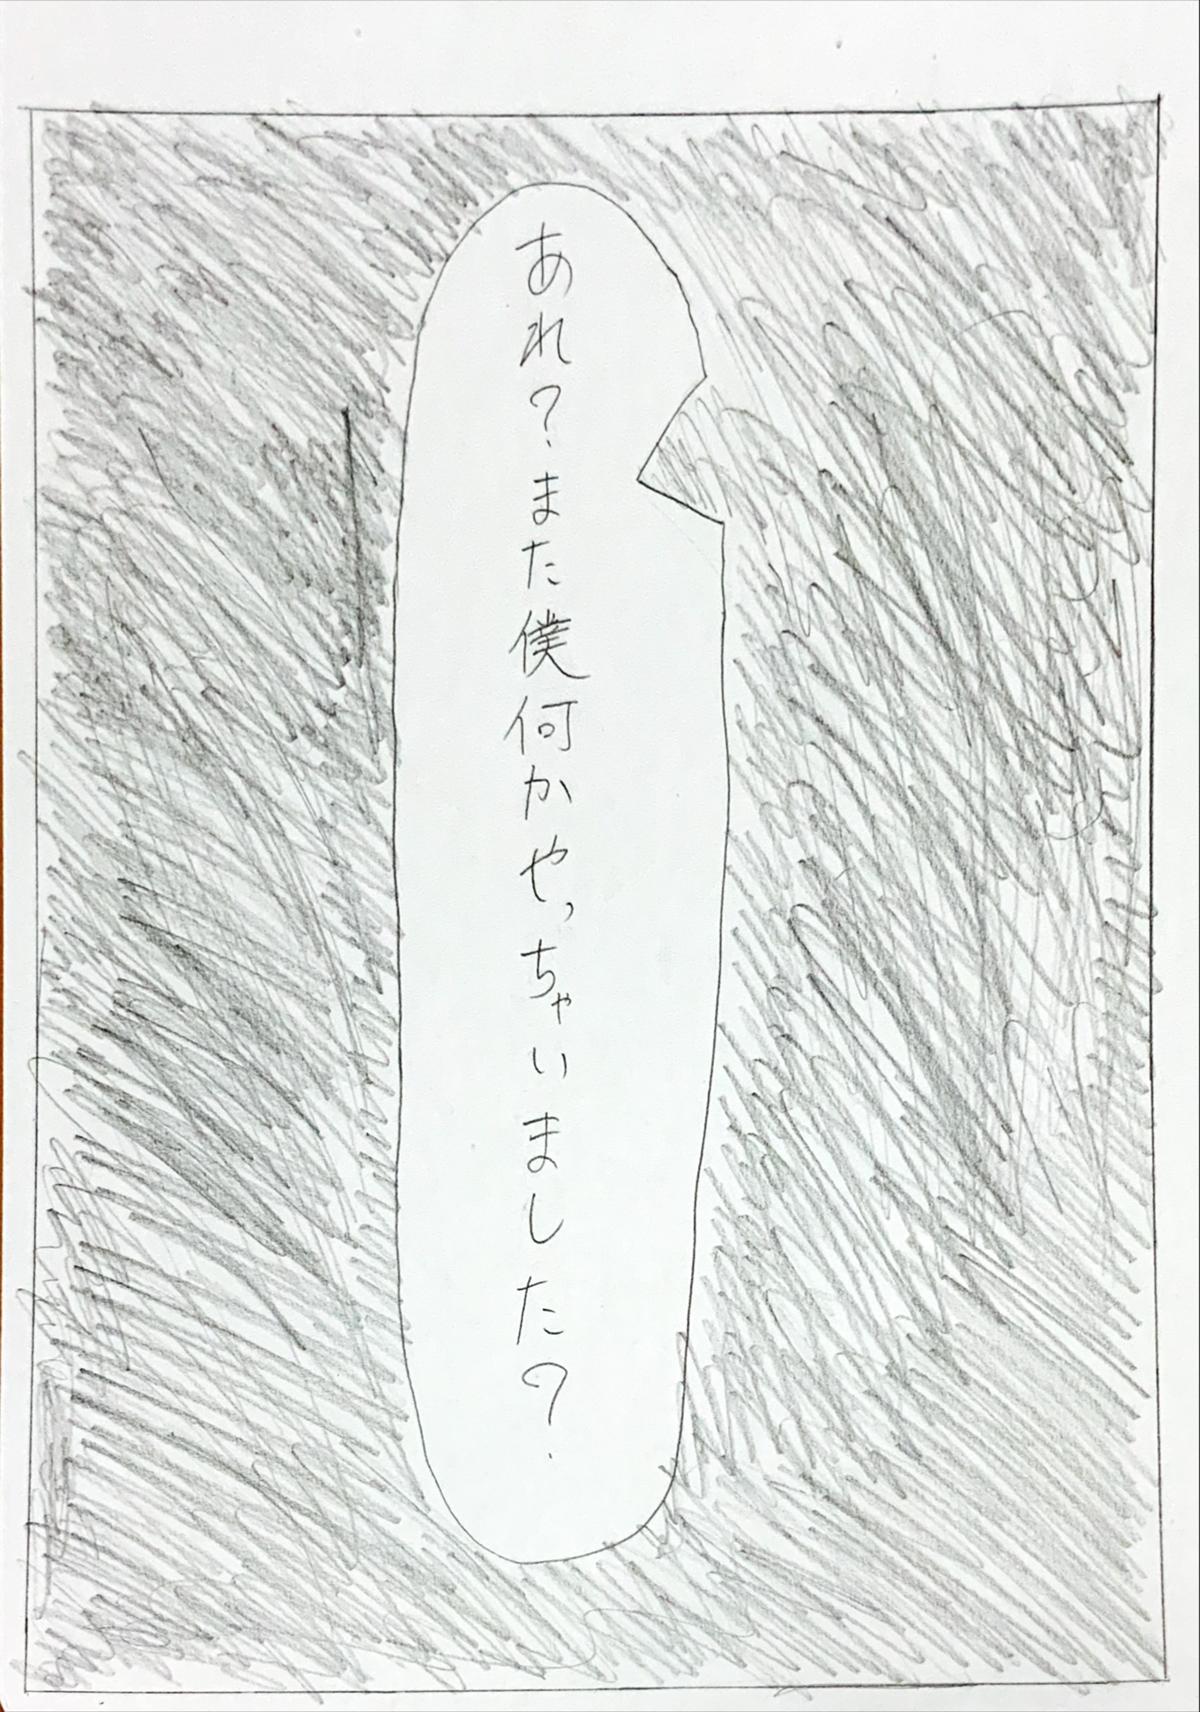 あれ?また僕何かやっちゃいました?